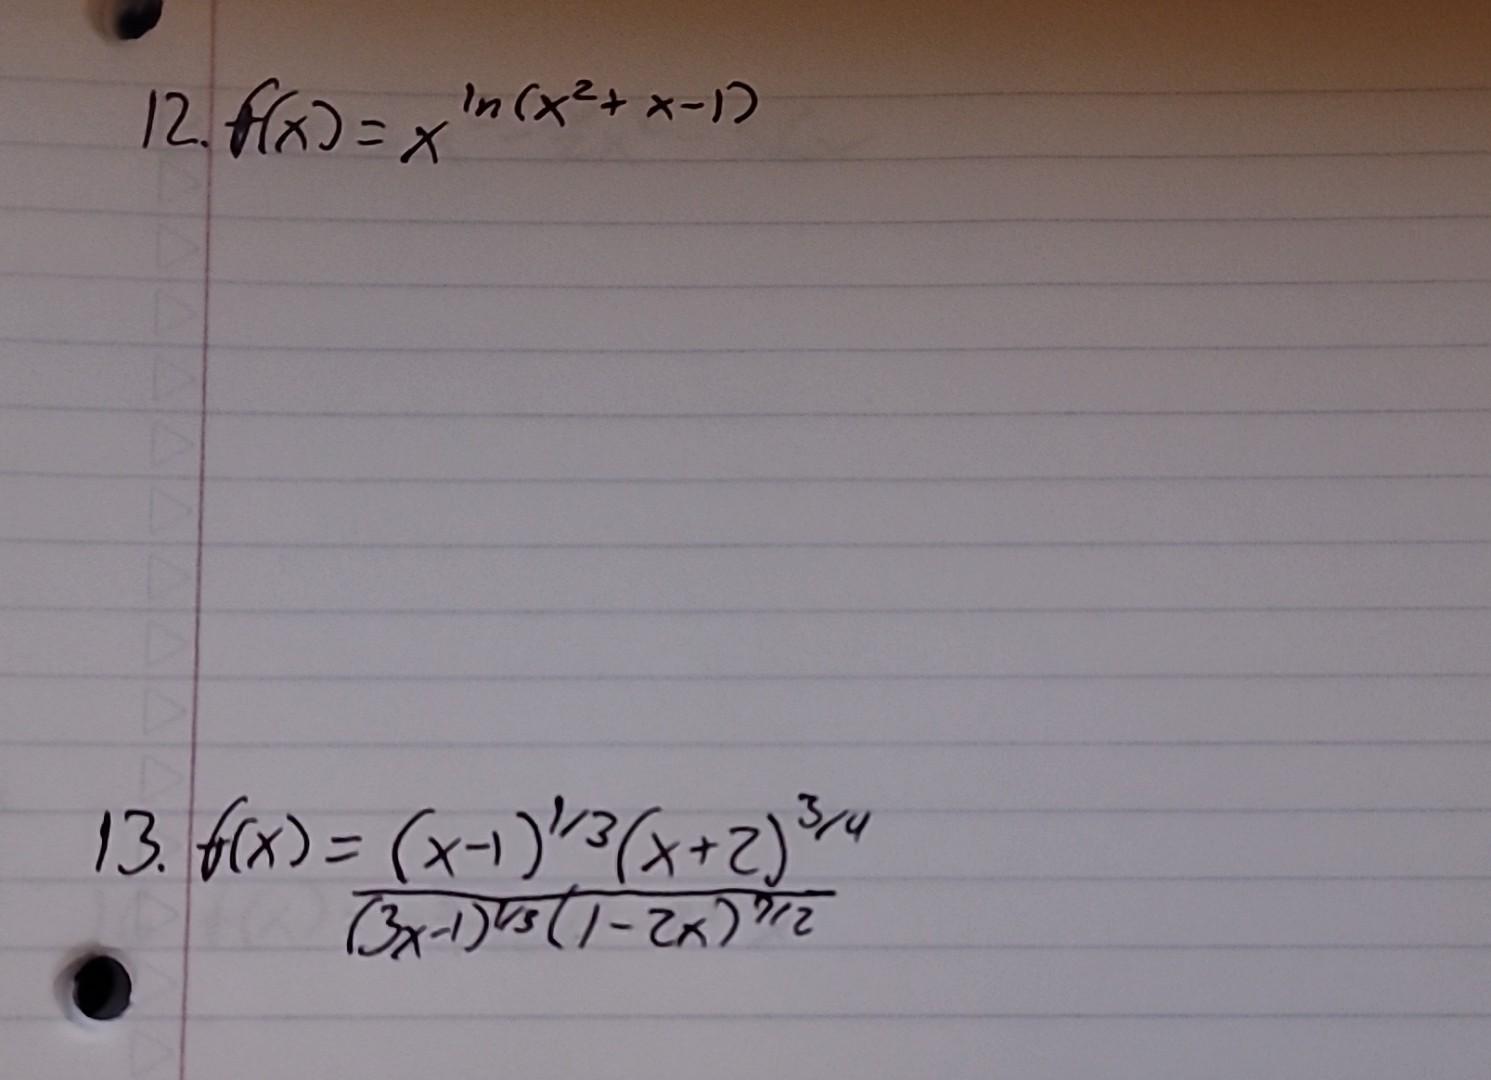 12. f(x) = x^ln(x²+ x-1)
13. f(x) = (x-1)^1/3(x+2)^3/4
(3x-1)^1/3(1-2x)^7/2